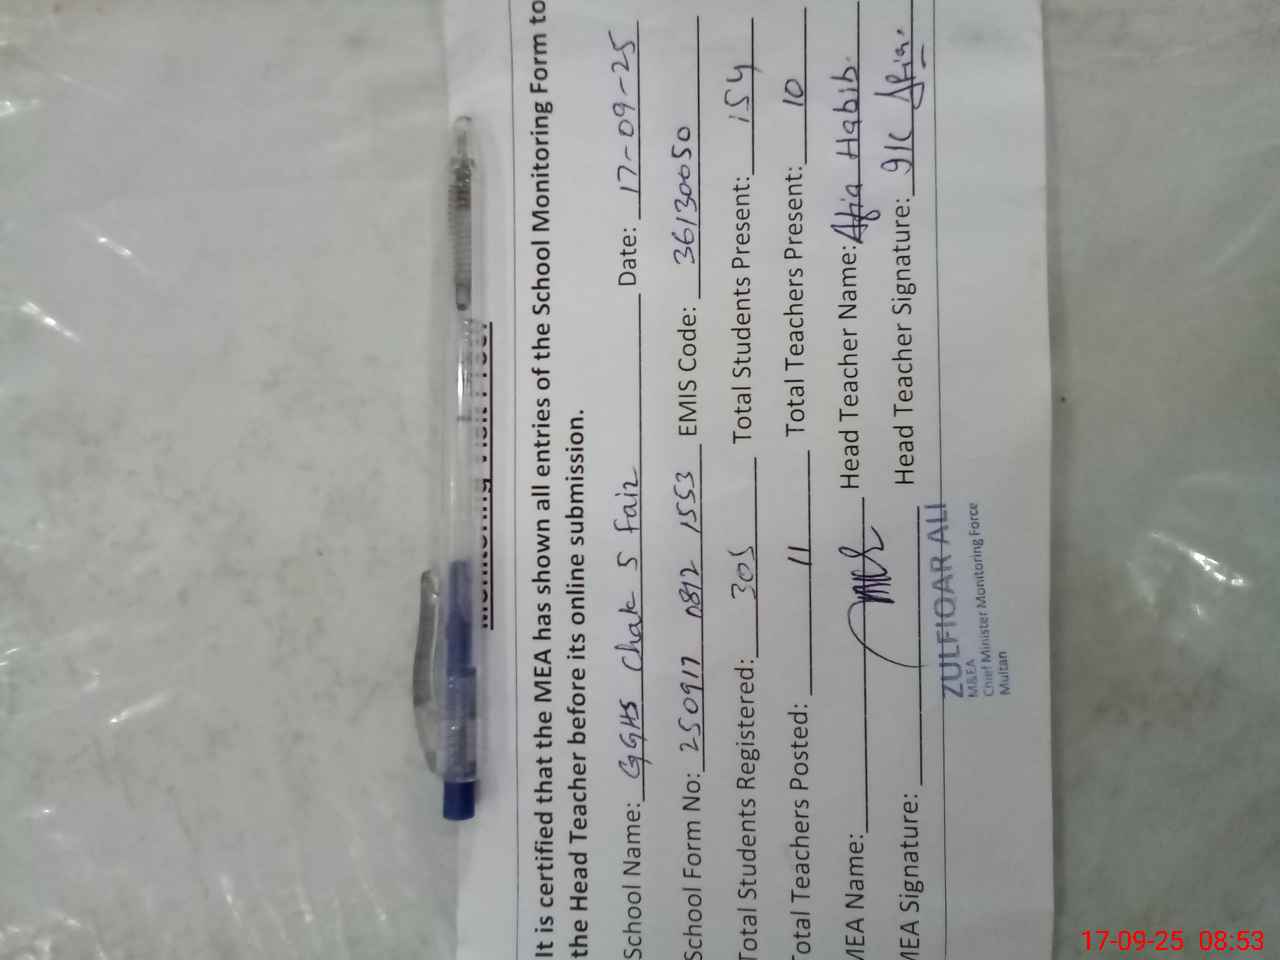 Monitoring Visit Proof
It is certified that the MEA has shown all entries of the School Monitoring Form to
the Head Teacher before its online submission.
School Name: GGHS Chak 5 Faiz Date: 17-09-25
School Form No: 250917 0812 1553 EMIS Code: 36130050
Total Students Registered: 305 Total Students Present: 154
Total Teachers Posted: 11 Total Teachers Present: 10
MEA Name: Head Teacher Name: Afia Habib.
MEA Signature: Head Teacher Signature: Afia.
ZULFIQAR ALI
M&EA
Chief Minister Monitoring Force
Multan
17-09-25 08:53